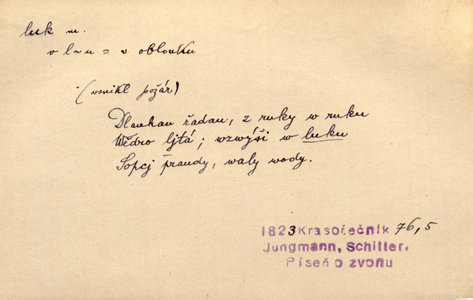 luk m.
v l-u = v oblouku
(vznikl požár)
Dlauhau řadau, z ruky w ruku
Wědro ljtá; wzwýši w luku
Sopcj praudy, waly wody.
1823 Krasořečník 76,5
Jungmann, Schiller,
Píseň o zvonu